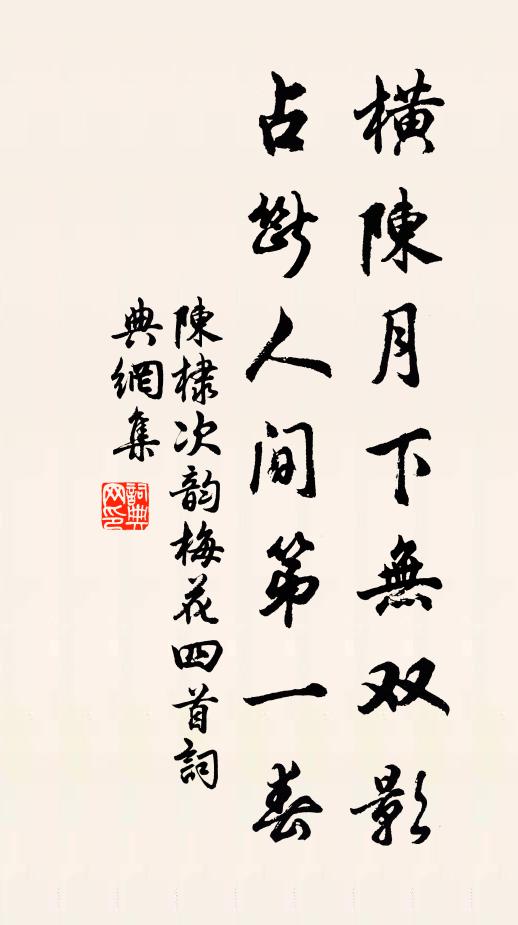 橫陳月下無双影
占斷人間第一春
陳棣次韵梅花四首詞
典網集
詞典
网印